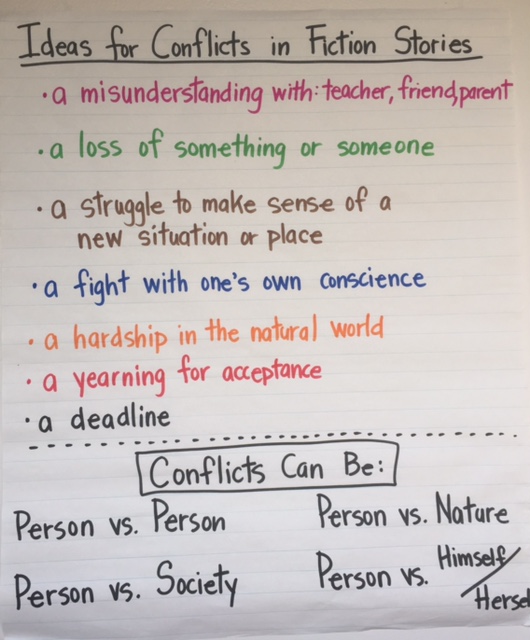 Ideas for Conflicts in Fiction Stories
· a misunderstanding with: teacher, friend, parent
· a loss of something or someone
· a struggle to make sense of a
new situation or place
· a fight with one's own conscience
· a hardship in the natural world
· a yearning for acceptance
· a deadline
Conflicts Can Be:
Person vs. Person
Person vs. Nature
Person vs. Society
Person vs. Himself/
Hersel